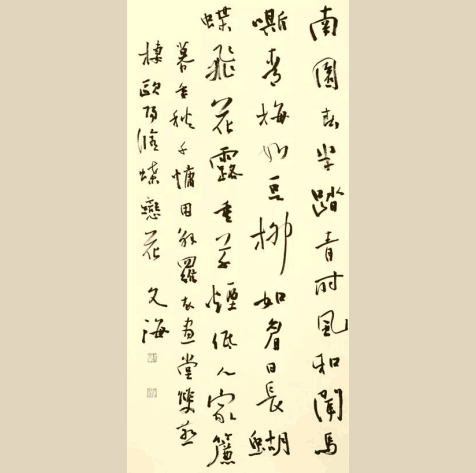 南園春半踏青时風和闻馬
嘶青梅如豆柳如眉日長蝴
蝶飛花露重草煙低人家簾
幕垂秋千慵困解羅衣畫堂雙燕
棲歐陽脩蝶戀花 文海